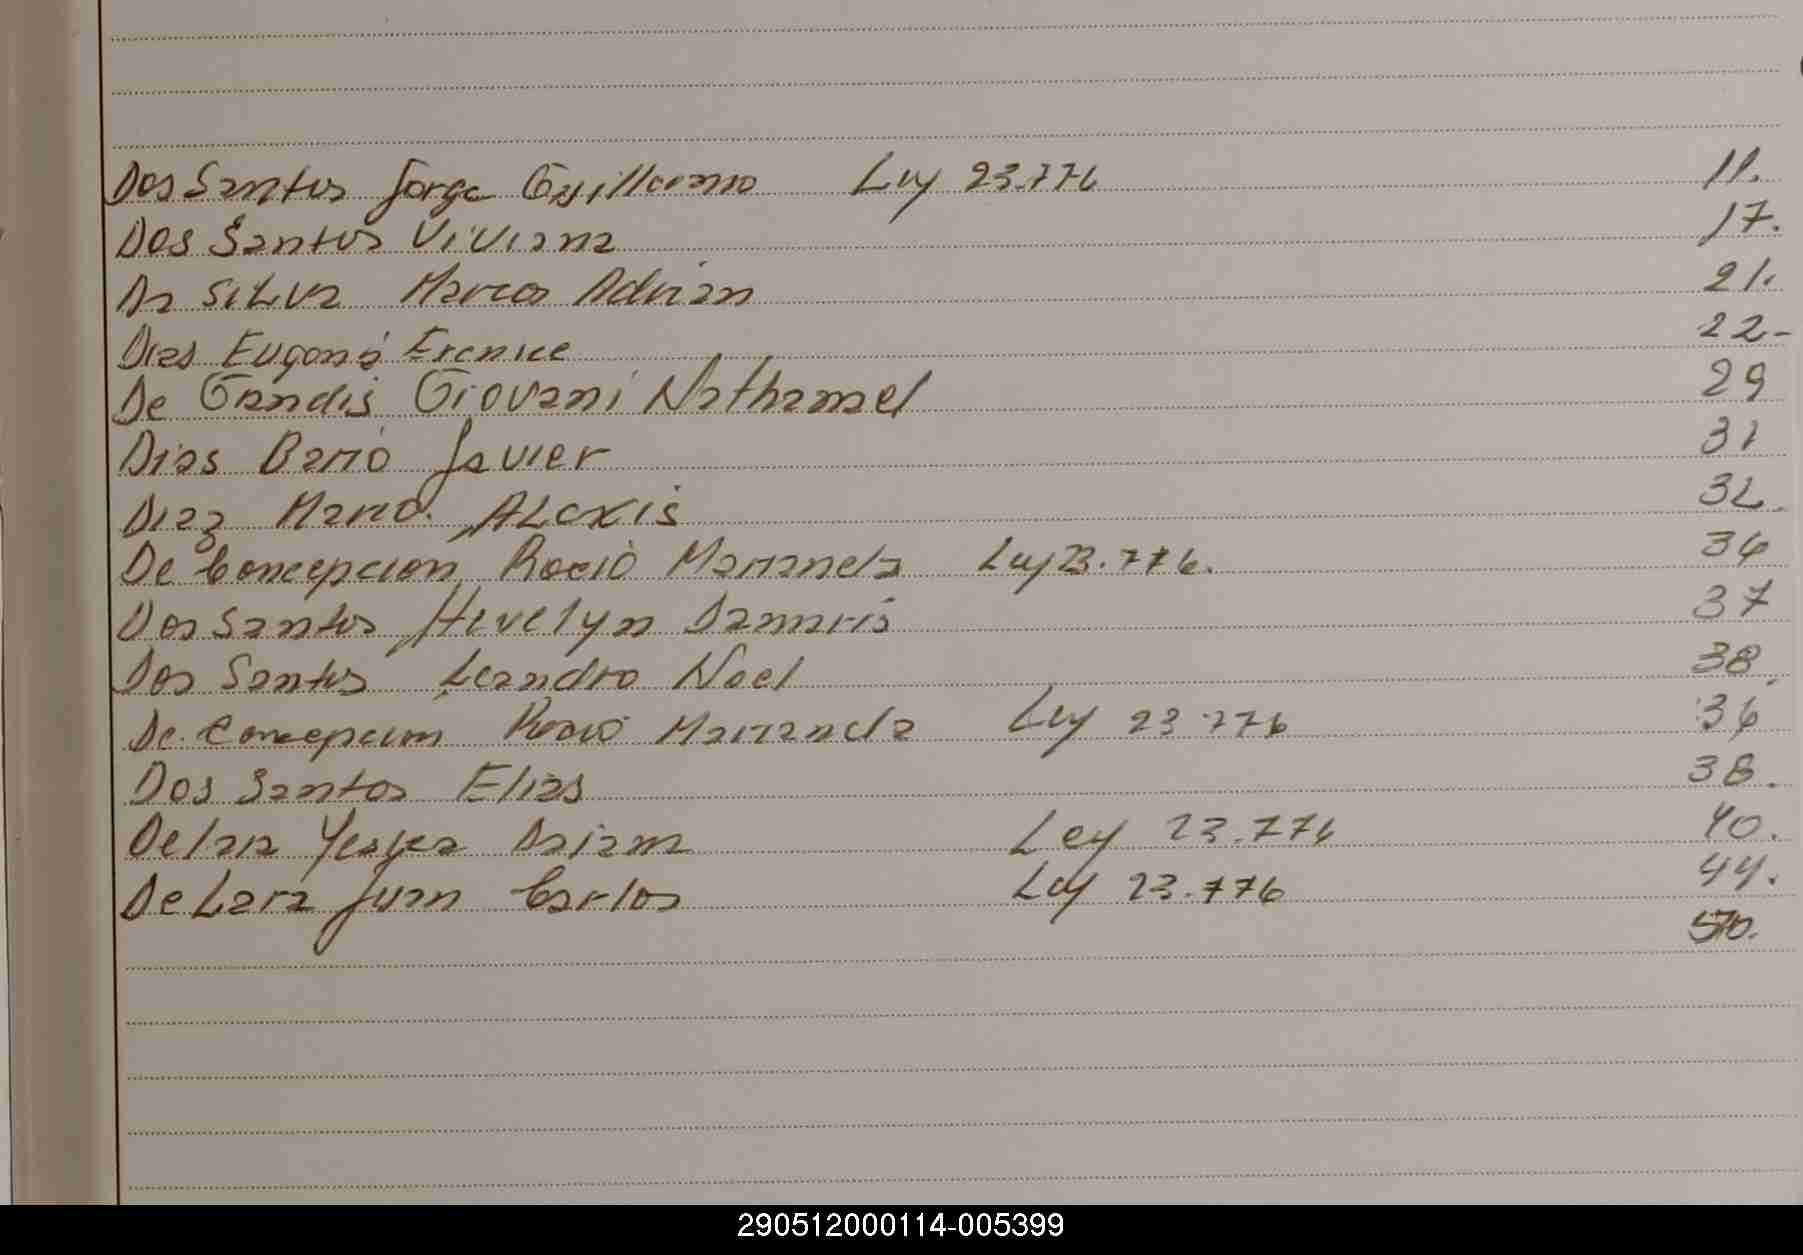 Dos Santos Jorge Guillermo Ley 23.776 11.
Dos Santos Viviana 17.
Da SiLva Marcos Adrian 21.
Dias Eugenia Erenice 22-
De Grandis Giovani Nathanael 29
Dias Dario Javier 31
Diaz Mario. ALexis 32
De Concepcion Rocio Marianela Ley 23.776. 36
Dos Santos Hevelyn Damaris 37
Dos Santos Leandro Noel 38
De Concepcion Rocio Marianela Ley 23.776 36
Dos Santos Elias 38.
Delara Yesyca Daiam Ley 23.776 40.
De Lara Juan Carlos Ley 23.776 44.
290512000114-005399